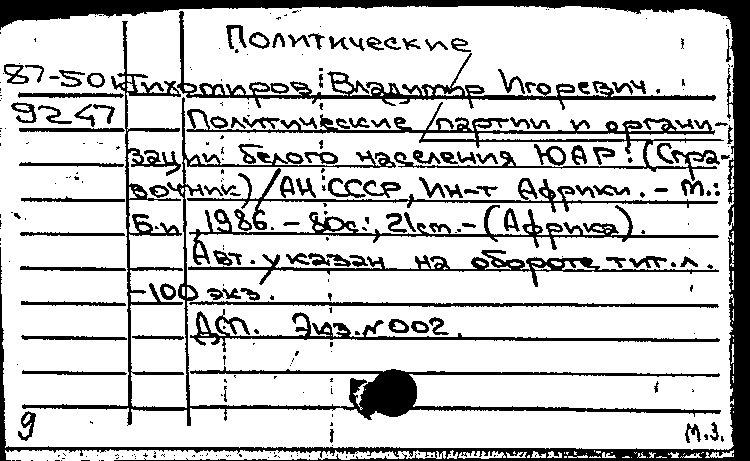 Политические
87-501 Тихомиров, Владимир Игоревич.
9247 Политические партии и органи-
зации белого населения ЮАР: (Спра-
вочник) / АН СССР, Ин-т Африки. - М.:
Б.и., 1986. - 80с.; 21см. - (Африка).
Авт. указан на обороте тит.л.
-100 экз.
ДСП. Экз.N002.
9
М.З.